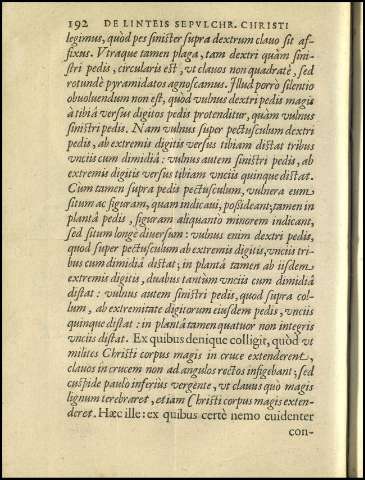 192 DE LINTEIS SEPVLCHR. CHRISTI
legimus, quòd pes sinister supra dextrum clauo sit af-
fixus. Vtraque tamen plaga, tam dextri quàm sini-
stri pedis, circularis est, vt clauos non quadratè, sed
rotundè pyramidatos agnoscamus. Illud porrò silentio
obuoluendum non est, quòd vulnus dextri pedis magis
à tibiâ versus digitos pedis protenditur, quàm vulnus
sinistri pedis. Nam vulnus super pectusculum dextri
pedis, ab extremis digitis versus tibiam distat tribus
vnciis cum dimidiâ: vulnus autem sinistri pedis, ab
extremis digitis versus tibiam vnciis quinque distat.
Cum tamen supra pedis pectusculum, vulnera eum
situm ac figuram, quam indicaui, possideant; tamen in
plantâ pedis, figuram aliquanto minorem indicant,
sed situm longè diuersum: vulnus enim dextri pedis,
quod super pectusculum ab extremis digitis, vnciis tri-
bus cum dimidiâ distat; in plantâ tamen ab iisdem
extremis digitis, duabus tantùm vnciis cum dimidiâ
distat: vulnus autem sinistri pedis, quod supra col-
lum, ab extremitate digitorum eiusdem pedis, vnciis
quinque distat: in plantâ tamen quatuor non integris
vnciis distat. Ex quibus denique colligit, quòd vt
milites Christi corpus magis in cruce extenderent,
clauos in crucem non ad angulos rectos infigebant; sed
cuspide paulo inferiùs vergente, vt clauus quò magis
lignum terebraret, etiam Christi corpus magis exten-
deret. Hæc ille: ex quibus certè nemo euidenter
con-